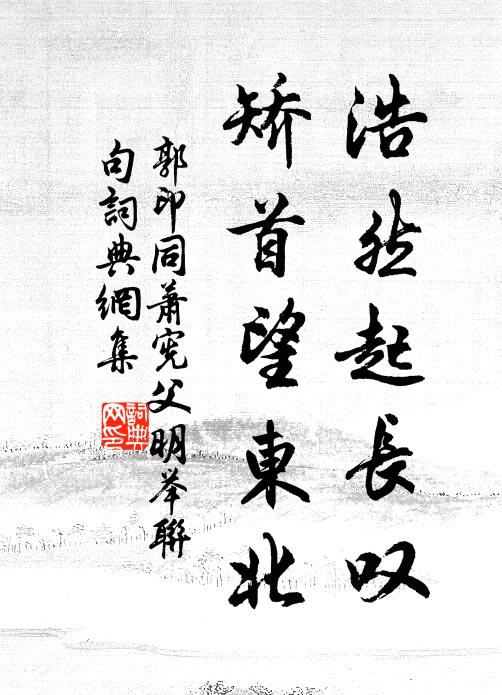 浩然起長叹
矯首望東北
郭印同蕭宪父明举聯
句詞典網集
詞典網印